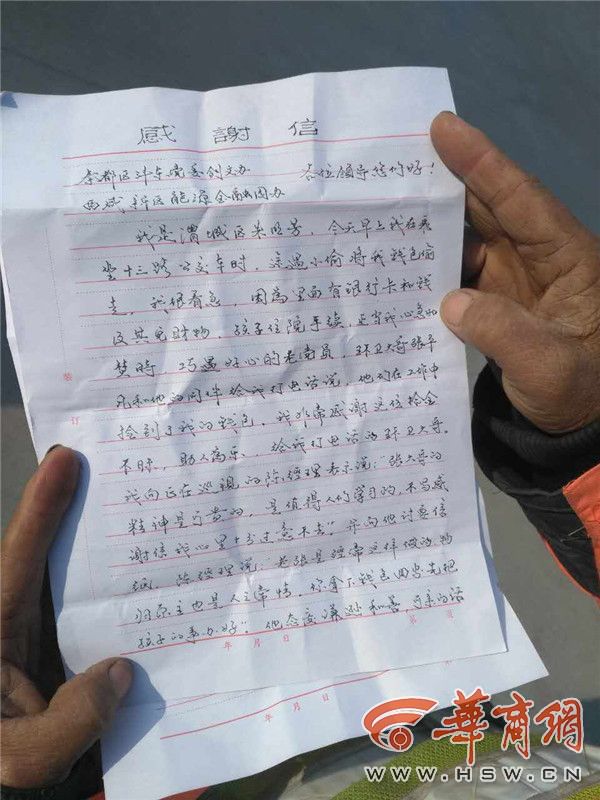 感謝信
秦都区沣东党委创文办 各位领导您们好！
西咸新区能源金融园办
我是渭城区米 芳，今天早上我在乘
坐十三路公交车时，遭遇小偷将我钱包偷
走。我很着急，因为里面有银行卡和钱
及其它财物，孩子住院手续，正当我心急如
焚時，巧遇好心的老党员，环卫大哥张平
凡和他的同伴给我打电话说，他们在工作中
捡到了我的钱包。我非常感谢这位拾金
不昧，助人为乐，给我打电话的环卫大哥。
我向正在巡视的陈经理表示说："张大哥的
精神是可贵的，是值得人们学习的，不写感
谢信我心里十分过意不去"。并向他讨要信
纸，陈经理说，老张是经常这样做的，物
归原主也是人之常情，你拿上钱包回去先把
孩子的事办好"。他态度谦逊和善，
装
订
年 月 日
年 月 日
華商網
WWW.HSW.CN